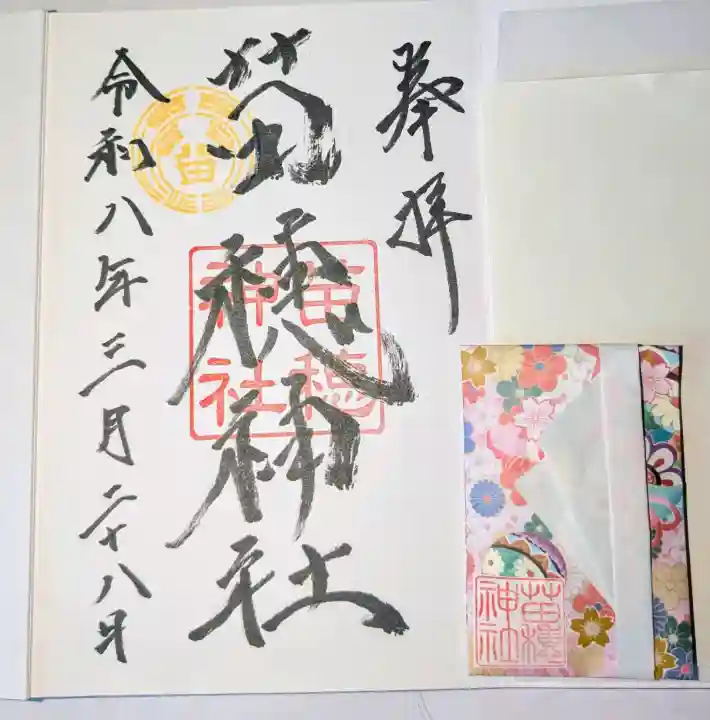 奉拝
苗穂神社
苗穂
神社
苗
令和八年三月二十八日
苗穂
神社